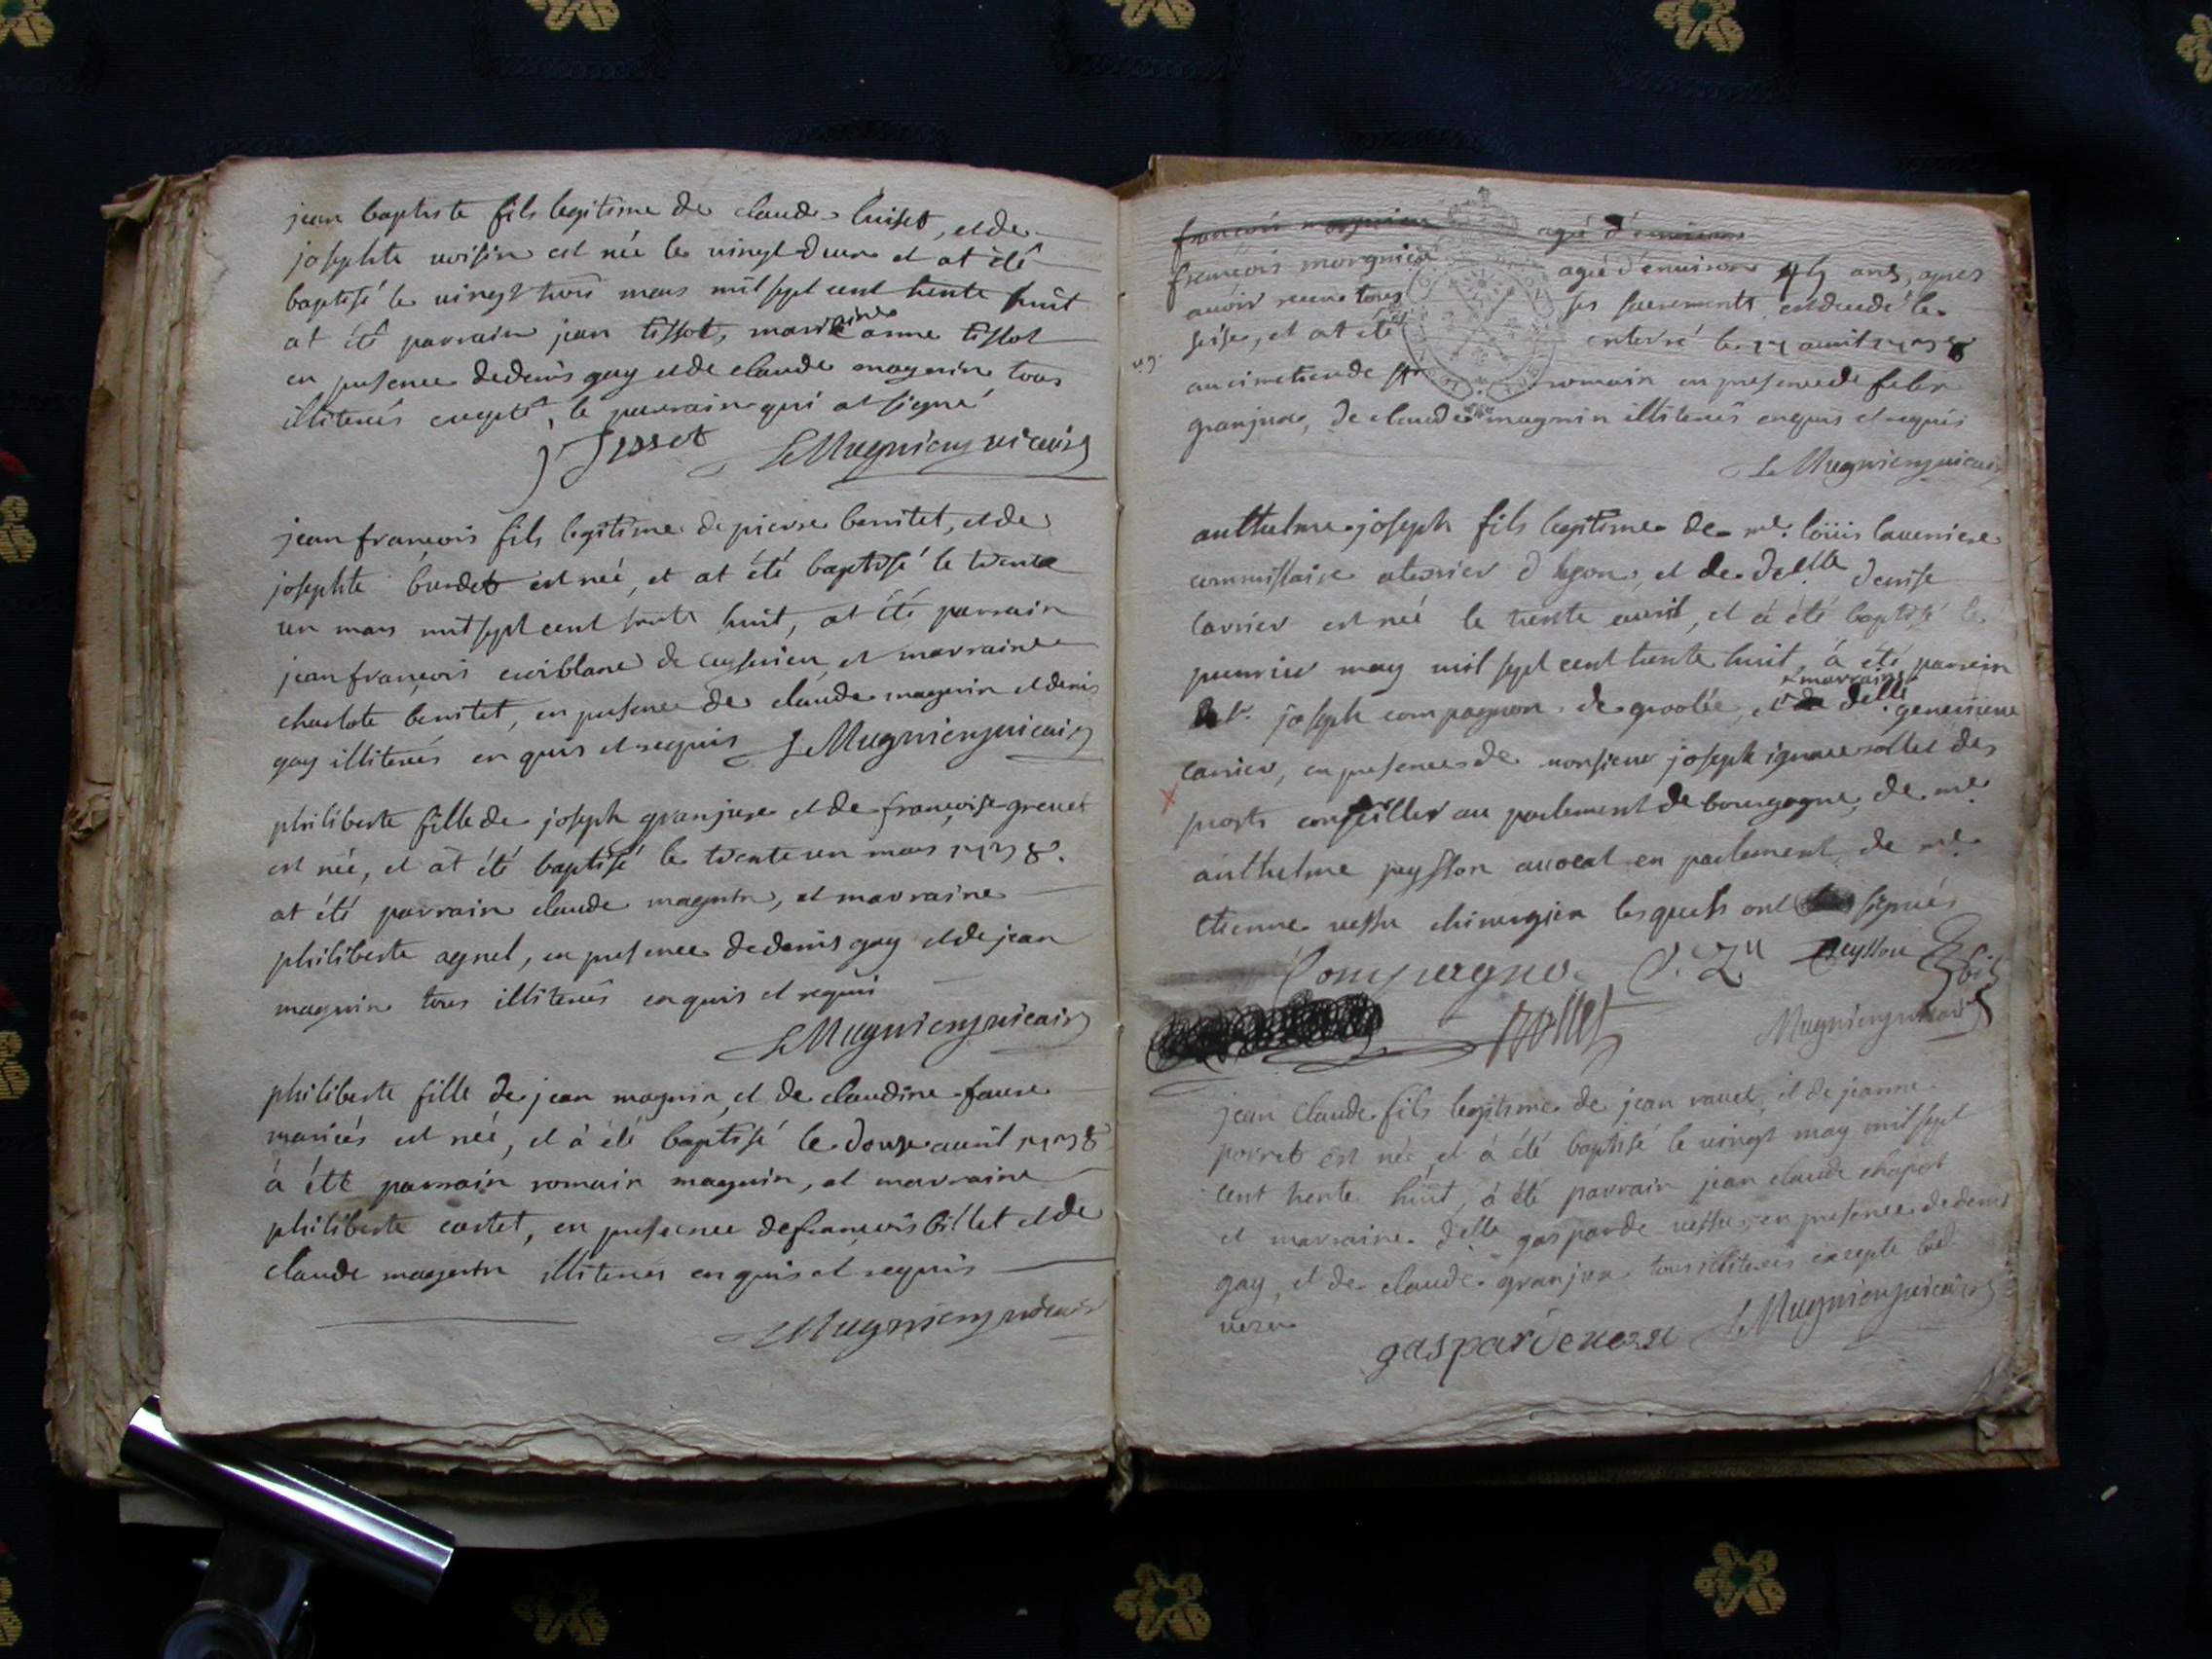 jean baptiste fils legitime de claude luiset, et de
josephte voisin est née le vingt deux et at été
baptisé le vingt trois mars mil sept cent trente huit
at été parrain jean tissot, marraine anne tissot
en presence de denis gay et de claude magnin tous
illiterés excepté le parrain qui at signé
J Tissot S Mugnier vicaire
jean françois fils legitime de pierre benitet, et de
josephte burdet est né, et at été baptisé le trente
un mars mil sept cent trente huit, at été parrain
jean françois de et marraine
charlote benitet, en presence de claude magnin et denis
gay illiterés enquis et requis S Mugnier vicaire
philiberte fille de joseph granjux et de françoise
est née, et at été baptisé le trente un mars 1738.
at été parrain claude magnin, et marraine
philiberte agnel, en presence de denis gay et de jean
magnin tous illiterés enquis et requis
S Mugnier vicaire
philiberte fille de jean magnin et de claudine faure
mariés est née, et à été baptisé le douze avril 1738
à été parrain romain magnin, et marraine
philiberte cartet, en presence de françois billet et de
claude magnin illiterés enquis et requis
S Mugnier vicaire
françois agé d'environ
françois morgnieu agé d'environ 45 ans, apres
avoir receu tous ses sacrements est decedé le
seise, et at été enterré le 17 avril 1738
au cimetiere de st romain en presence de
granjux, de claude magnin illiterés enquis et requis
S Mugnier vicaire
anthelme joseph fils legitime de mr. loüis laverniere
commissaire d lyon, et de delle denise
carrier est né le trente avril, et à été baptisé le
premier may mil sept cent trente huit, à été parrain
Sr. joseph compagnon de groolée, et marraine delle. genevieve
carrier, en presence de monsieur joseph ignace rollet des
prosts conseiller au parlement de bourgogne, de mr.
anthelme peysson avocat en parlement, de mr.
etienne vessu chirurgien lesquels ont signés
Compagno Peysson
rollet Mugnier vicaire
jean claude fils legitime de jean ravet, et de jeanne
porret est né, et à été baptisé le vingt may mil sept
cent trente huit, à été parrain jean claude chapot
et marraine delle gasparde vessu, en presence de denis
gay, et de claude granjux tous illiterés excepté lad.
vezu
gasparde vezu S Mugnier vicaire